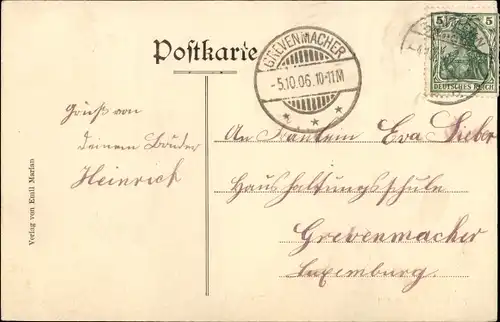 Postkarte
GREVENMACHER
-5.10.06.10-11M
5 5
DEUTSCHES REICH
Gruß von
deinem Bruder
Heinrich
An Fräulein Eva Sieber
Haushaltungsschule
Grevenmacher
Luxemburg.
Verlag von Emil Marian